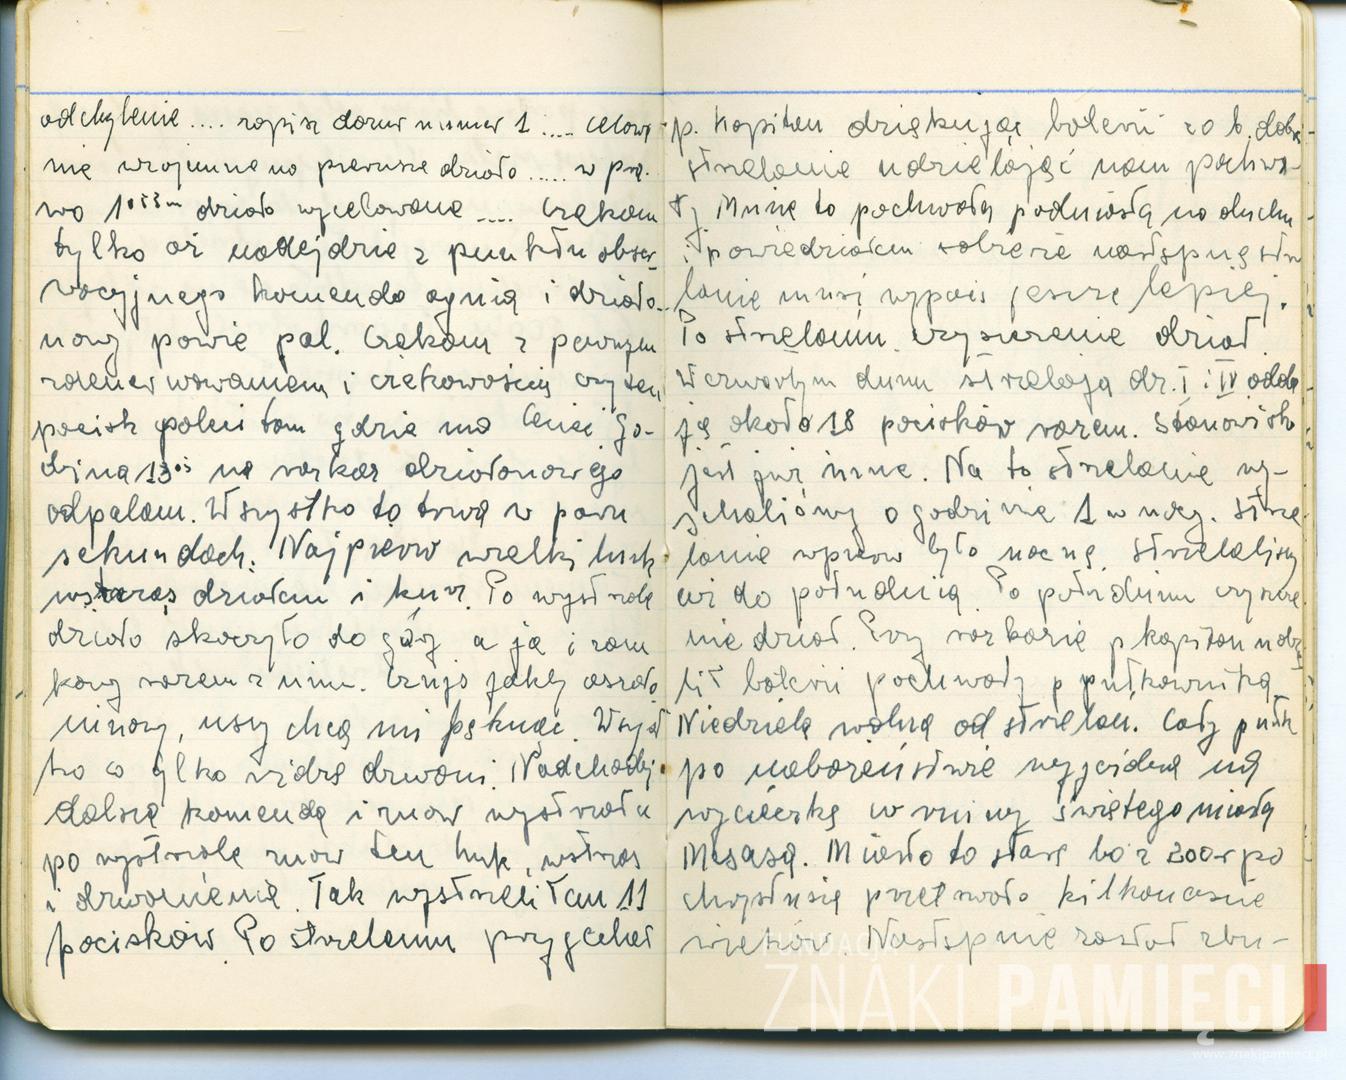 odchylenie .... zapisz dozur numer 1 .... celowa-
nie wzajemne na pierwsze działo ..... w pra-
wo działo wycelowane .... Czekam
tylko aż nadejdzie z punktu obser-
wacyjnego komenda ognia i działo-
nowy powie pal. Czekam z pewnym
zdenerwowaniem i ciekawością czy ten
pocisk poleci tam gdzie ma lecieć. Go-
dzina 13⁰⁵ na rozkaz działonowego
odpalam. Wszystko to trwa w paru
sekundach. Najpierw wielki huk
wstrząs działem i kurz. Po wystrzale
działo skoczyło do góry a ja i zam
kowy razem z nim. Czuję jakby
, uszy chcą mi pęknąć. Wszyst
ko co tylko widzę dzwoni. Nadchodzi
dalsza komenda i znów wystrzału
po wystrzale znów ten huk, wstrząs
i dzwonienie. Tak wystrzeliłem 11
pocisków. Po strzelaniu przyjechał
p. kapitan dziękując baterii za b. dobre
strzelanie udzielając nam pochwa-
ły. Mnie ta pochwała podniosła na duchu
i powiedziałem sobie że następne strze
lanie musi wypaść jeszcze lepiej.
Po strzelaniu czyszczenie dział.
W czwartym dniu strzelają dz. I i IV odda
ją około 18 pocisków razem. Stanowisko
jest już inne. Na to strzelanie wy-
jechaliśmy o godzinie 1 w nocy. Strze-
lanie wpierw było nocne. Strzelaliśmy
aż do południa. Po południu czyszcze
nie dział. Przy rozkazie p kapitan udzie
lił baterii pochwały p pułkownika
Niedziela wolna od strzelań. Cały pułk
po nabożeństwie wyjeżdża na
wycieczkę w ruiny świętego miasta
Mesasa. Miasto to stare bo z 300 r po
chrystusie przetrwało kilkanaście
wieków. Następnie został zbu-
FUNDACJA
ZNAKI PAMIĘCI
www.znakipamieci.pl